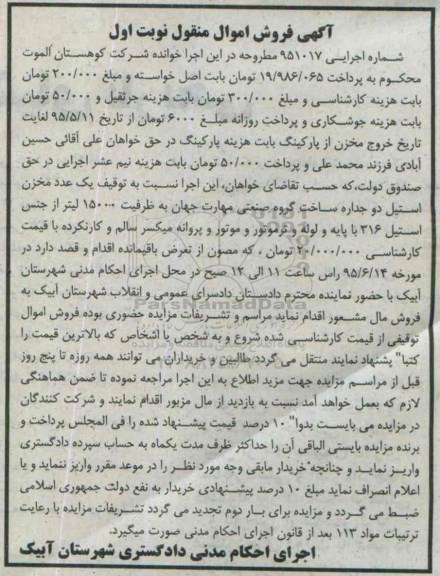 آگهی فروش اموال منقول نوبت اول
شماره اجرایی ۹۵۱۰۱۷ مطروحه در این اجرا خوانده شرکت کوهستان آلموت
محکوم به پرداخت ۱۹/۹۸۶/۰۶۵ تومان بابت اصل خواسته و مبلغ ۲۰۰/۰۰۰ تومان
بابت هزینه کارشناسی و مبلغ ۳۰۰/۰۰۰ تومان بابت هزینه جرثقیل و ۵۰/۰۰۰ تومان
بابت هزینه جوشکاری و پرداخت روزانه مبلغ ۶۰۰۰ تومان از تاریخ ۹۵/۵/۱۱ لغایت
تاریخ خروج مخزن از پارکینگ بابت هزینه پارکینگ در حق خواهان علی آقائی حسین
آبادی فرزند محمد علی و پرداخت ۵۰/۰۰۰ تومان بابت هزینه نیم عشر اجرایی در حق
صندوق دولت،که حسب تقاضای خواهان، این اجرا نسبت به توقیف یک عدد مخزن
استیل دو جداره ساخت گروه صنعتی مهارت جهان به ظرفیت ۱۵۰۰۰ لیتر از جنس
استیل ۳۱۶ با پایه و لوله و ترموتور و موتور و پروانه میکسر سالم و کارنکرده با قیمت
کارشناسی ۴۰/۰۰۰/۰۰۰ تومان ، که مصون از تعرض باقیمانده اقدام و قصد دارد در
مورخه ۹۵/۶/۱۴ راس ساعت ۱۱ الی ۱۲ صبح در محل اجرای احکام مدنی شهرستان
آبیک با حضور نماینده محترم دادستان دادسرای عمومی و انقلاب شهرستان آبیک به
فروش مال مشعور اقدام نماید مراسم و تشریفات مزایده حضوری بوده فروش اموال
توقیفی از قیمت کارشناسی شده شروع و به شخص یا اشخاص که بالاترین قیمت را
کتبا" پیشنهاد نمایند منتقل می گردد طالبین و خریداران می توانند همه روزه تا پنج روز
قبل از مراسم مزایده جهت مزید اطلاع به این اجرا مراجعه نموده تا ضمن هماهنگی
لازم که بعمل خواهد آمد نسبت به بازدید از مال مزبور اقدام نمایند و شرکت کنندگان
در مزایده می بایست بدوا" ۱۰ درصد قیمت پیشنهاد شده را فی المجلس پرداخت و
برنده مزایده بایستی الباقی آن را حداکثر ظرف مدت یکماه به حساب سپرده دادگستری
واریز نماید و چنانچه خریدار مابقی وجه مورد نظر را در موعد مقرر واریز ننماید و یا
اعلام انصراف نماید مبلغ ۱۰ درصد پیشنهادی خریدار به نفع دولت جمهوری اسلامی
ضبط می گردد و مزایده برای بار دوم تجدید می گردد تشریفات مزایده با رعایت
ترتیبات مواد ۱۱۳ بعد از قانون اجرای احکام مدنی صورت میگیرد.
اجرای احکام مدنی دادگستری شهرستان آبیک
ParsNamadData